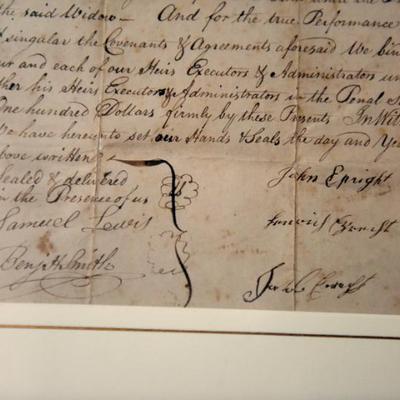 the said Widow — And for the true Performance
singular the Covenants & Agreements aforesaid We bin
our and each of our Heirs Executors & Administrators un
his Heirs Executors & Administrators in the Penal
One hundred Dollars firmly by these Presents In Wit
have hereunto set our Hands & Seals the day and Ye
above written
Sealed & delivered
in the Presence of us
Samuel Lewis
Benj. Smith
John Epright